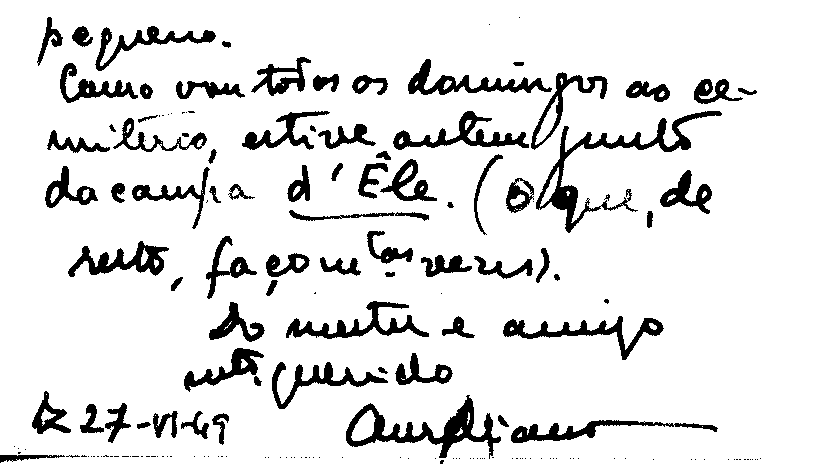 pequeno.
Como vou todos os domingos ao ce-
mitério, estive ontem junto
da campa d'Êle. (O que, de
resto, faço mtas vezes).
Do mestre e amigo
mto. querido
27-VI-49
Aureliano